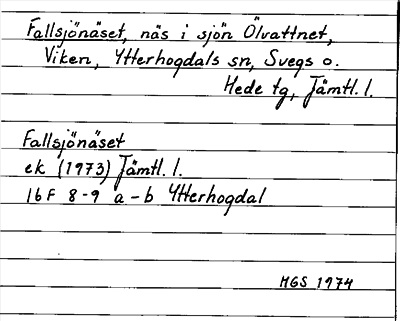 Fallsjönäset, näs i sjön Ölvattnet,
Viken, Ytterhogdals sn, Svegs o.
Hede tg, Jämtl. l.
Fallsjönäset
ek (1973) Jämtl. l.
16F 8-9 a-b Ytterhogdal
MGS 1974